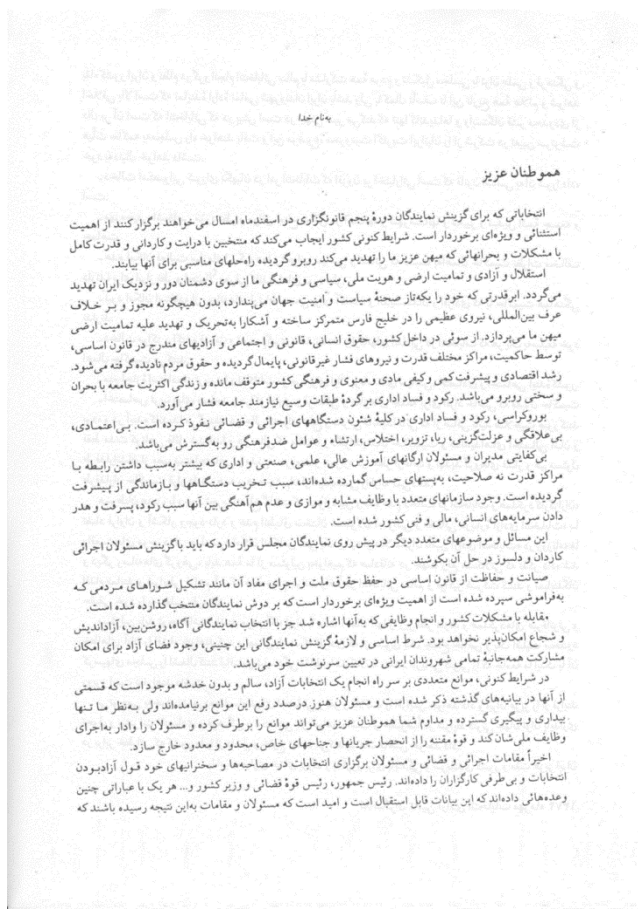 به‌نام خدا
هموطنان عزیز
انتخاباتی که برای گزینش نمایندگان دورهٔ پنجم قانونگزاری در اسفندماه امسال می‌خواهند برگزار کنند از اهمیت
استثنائی و ویژه‌ای برخوردار است. شرایط کنونی کشور ایجاب می‌کند که منتخبین با درایت و کاردانی و قدرت کامل
با مشکلات و بحرانهائی که میهن عزیز ما را تهدید می‌کند روبرو گردیده راه‌حلهای مناسبی برای آنها بیابند.
استقلال و آزادی و تمامیت ارضی و هویت ملی، سیاسی و فرهنگی ما از سوی دشمنان دور و نزدیک ایران تهدید
می‌گردد. ابرقدرتی که خود را یکه‌تاز صحنهٔ سیاست و امنیت جهان می‌پندارد، بدون هیچگونه مجوز و بر خلاف
عرف بین‌المللی، نیروی عظیمی را در خلیج فارس متمرکز ساخته و آشکارا به‌تحریک و تهدید علیه تمامیت ارضی
میهن ما می‌پردازد. از سوئی در داخل کشور، حقوق انسانی، قانونی و اجتماعی و آزادیهای مندرج در قانون اساسی،
توسط حاکمیت، مراکز مختلف قدرت و نیروهای فشار غیرقانونی، پایمال گردیده و حقوق مردم نادیده گرفته می‌شود.
رشد اقتصادی و پیشرفت کمی و کیفی مادی و معنوی و فرهنگی کشور متوقف مانده و زندگی اکثریت جامعه با بحران
و سختی روبرو می‌باشد. رکود و فساد اداری بر گردهٔ طبقات وسیع نیازمند جامعه فشار می‌آورد.
بوروکراسی، رکود و فساد اداری در کلیهٔ شئون دستگاههای اجرائی و قضائی نفوذ کرده است. بی‌اعتمادی،
بی‌علاقگی و عزلت‌گزینی، ریا، تزویر، اختلاس، ارتشاء و عوامل ضدفرهنگی رو به‌گسترش می‌باشد.
بی‌کفایتی مدیران و مسئولان ارگانهای آموزش عالی، علمی، صنعتی و اداری که بیشتر به‌سبب داشتن رابطه با
مراکز قدرت نه صلاحیت، به‌پستهای حساس گمارده شده‌اند، سبب تخریب دستگاهها و بازماندگی از پیشرفت
گردیده است. وجود سازمانهای متعدد با وظایف مشابه و موازی و عدم هم‌آهنگی بین آنها سبب رکود، پسرفت و هدر
دادن سرمایه‌های انسانی، مالی و فنی کشور شده است.
این مسائل و موضوعهای متعدد دیگر در پیش روی نمایندگان مجلس قرار دارد که باید با گزینش مسئولان اجرائی
کاردان و دلسوز در حل آن بکوشند.
صیانت و حفاظت از قانون اساسی در حفظ حقوق ملت و اجرای مفاد آن مانند تشکیل شوراهای مردمی که
به‌فراموشی سپرده شده است از اهمیت ویژه‌ای برخوردار است که بر دوش نمایندگان منتخب گذارده شده است.
مقابله با مشکلات کشور و انجام وظایفی که به‌آنها اشاره شد جز با انتخاب نمایندگانی آگاه، روشن‌بین، آزاداندیش
و شجاع امکان‌پذیر نخواهد بود. شرط اساسی و لازمهٔ گزینش نمایندگانی این چنینی، وجود فضای آزاد برای امکان
مشارکت همه‌جانبهٔ تمامی شهروندان ایرانی در تعیین سرنوشت خود می‌باشد.
در شرایط کنونی، موانع متعددی بر سر راه انجام یک انتخابات آزاد، سالم و بدون خدشه موجود است که قسمتی
از آنها در بیانیه‌های گذشته ذکر شده است و مسئولان هنوز درصدد رفع این موانع برنیامده‌اند ولی به‌نظر ما تنها
بیداری و پیگیری گسترده و مداوم شما هموطنان عزیز می‌تواند موانع را برطرف کرده و مسئولان را وادار به‌اجرای
وظایف ملی‌شان کند و قوهٔ مقننه را از انحصار جریانها و جناحهای خاص، محدود و معدود خارج سازد.
اخیراً مقامات اجرائی و قضائی و مسئولان برگزاری انتخابات در مصاحبه‌ها و سخنرانیهای خود قول آزادبودن
انتخابات و بی‌طرفی کارگزاران را داده‌اند. رئیس جمهور، رئیس قوهٔ قضائی و وزیر کشور و... هر یک با عباراتی چنین
وعده‌هائی داده‌اند که این بیانات قابل استقبال است و امید است که مسئولان و مقامات به‌این نتیجه رسیده باشند که